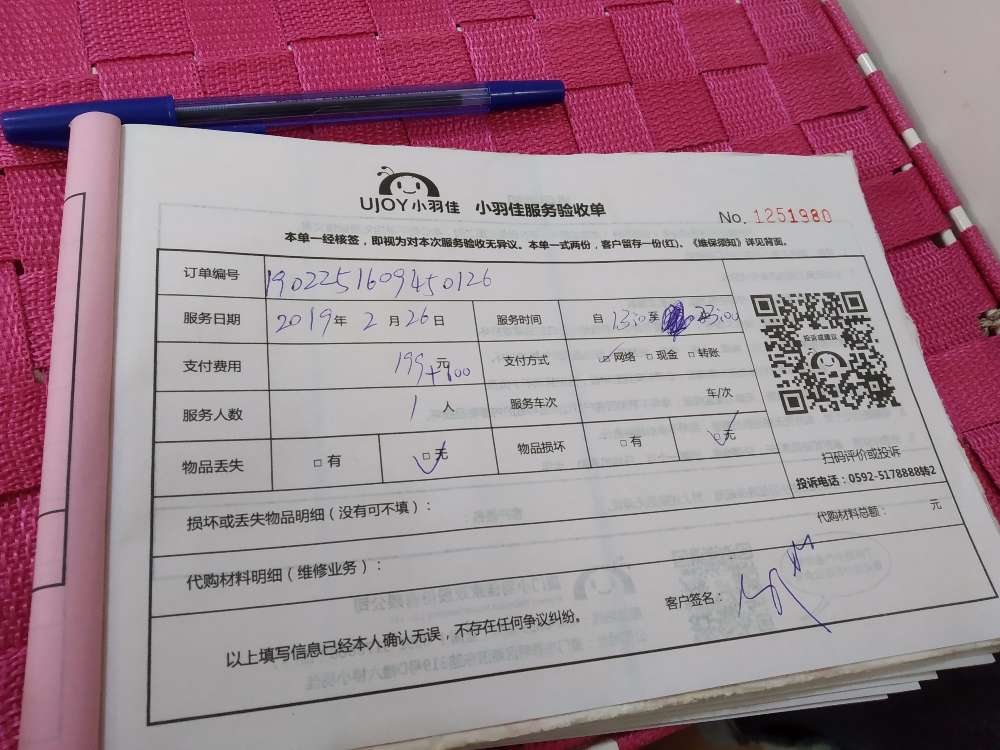 UJOY小羽佳 小羽佳服务验收单
No. 1251980
本单一经核签，即视为对本次服务验收无异议。本单一式两份，客户留存一份(红)、《维保须知》详见背面。
订单编号 1902251609450126
服务日期 2019年 2月26日 服务时间 自 13:00至 23:00
支付费用 199元+100 支付方式 ☑网络 □现金 □转账
服务人数 1人 服务车次 车/次
投诉或建议
物品丢失 □有 ☑无 物品损坏 □有 ☑无
扫码评价或投诉
投诉电话：0592-5178888转2
损坏或丢失物品明细（没有可不填）：
代购材料总额： 元
代购材料明细（维修业务）：
客户签名：
以上填写信息已经本人确认无误，不存在任何争议纠纷。